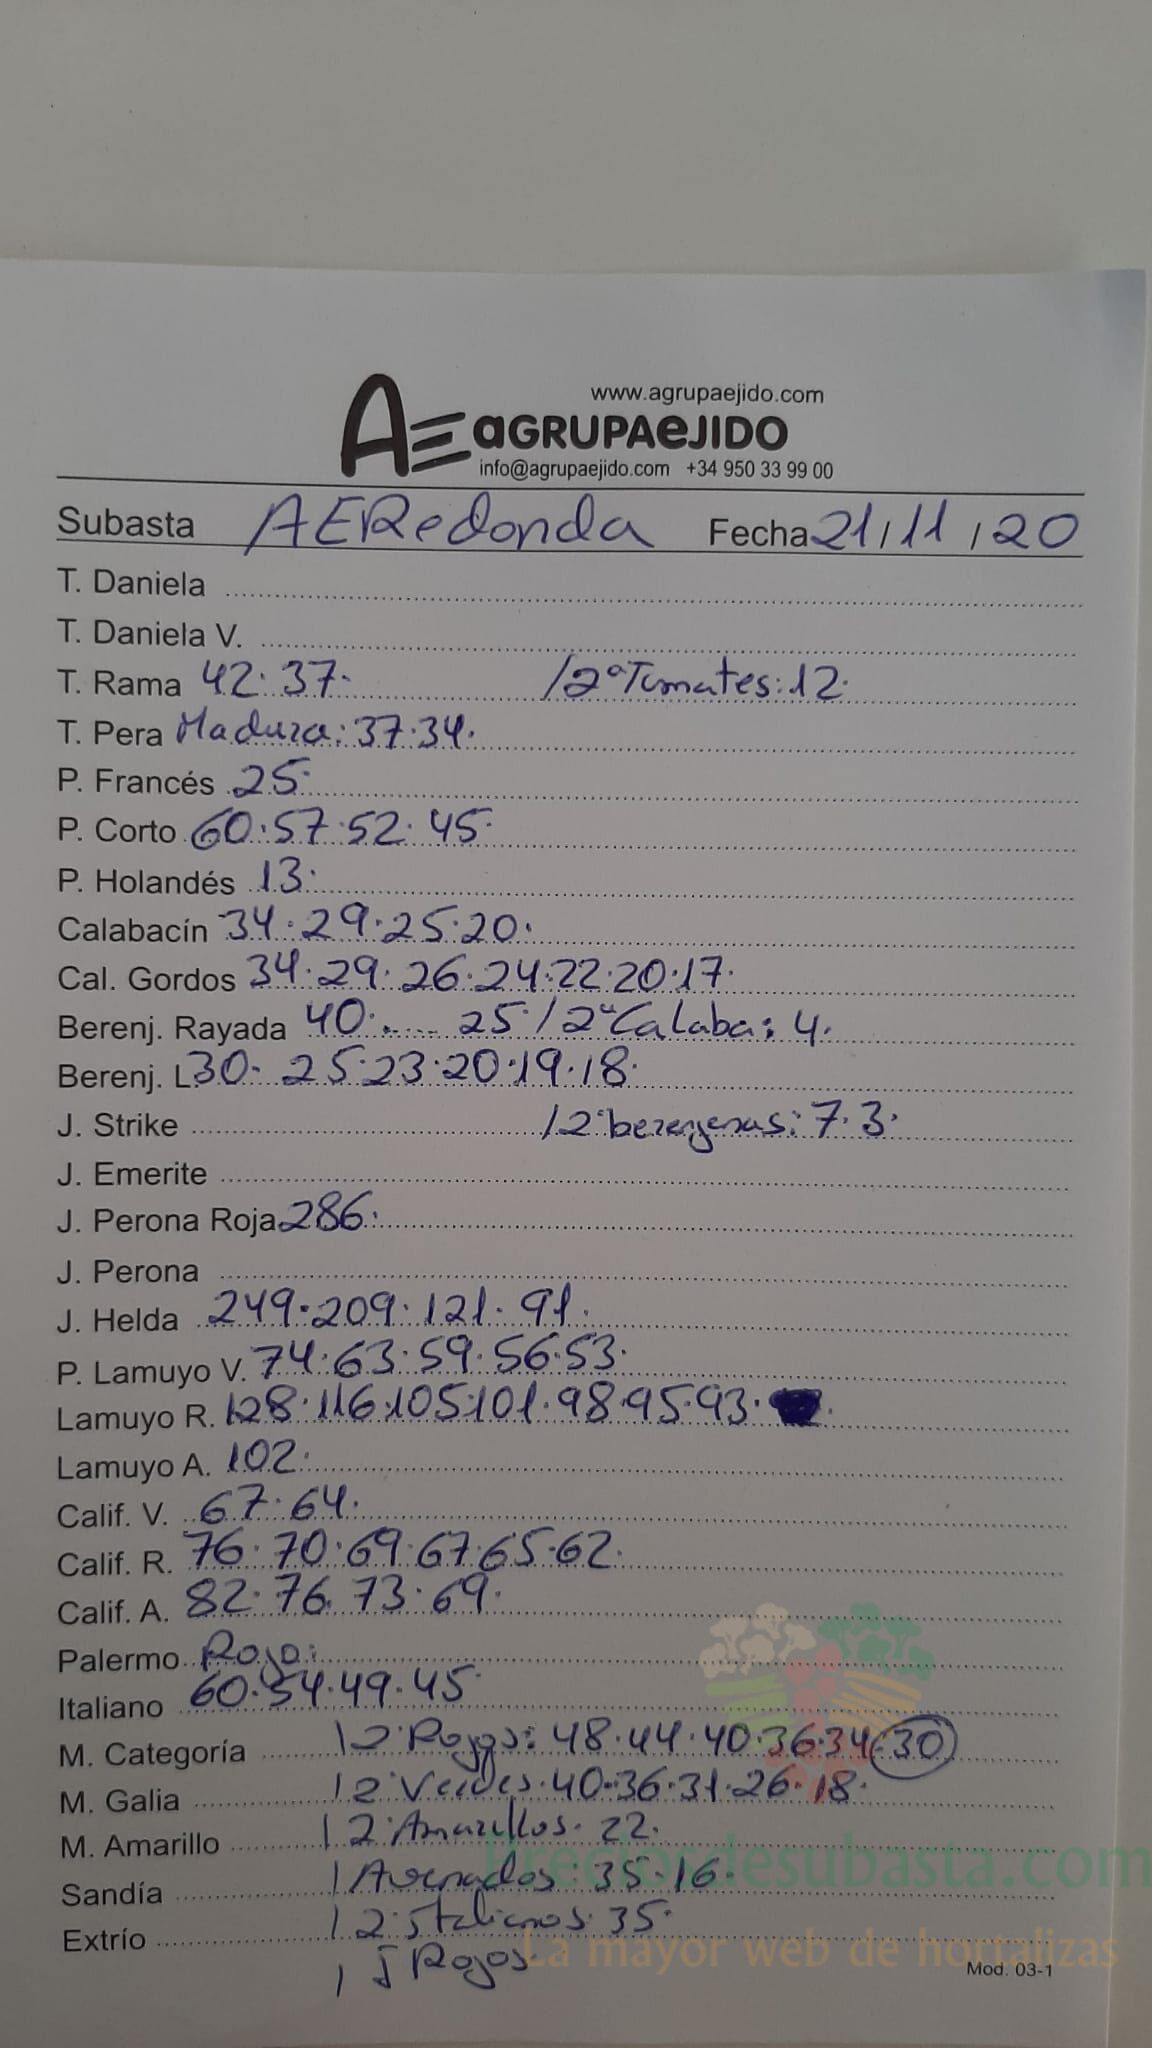 www.agrupaejido.com
AE aGRUPAeJIDO
info@agrupaejido.com +34 950 33 99 00
Subasta AERedonda Fecha 21/11/20
T. Daniela
T. Daniela V.
T. Rama 42·37· /2ª Tomates: 12·
T. Pera Madura: 37·34·
P. Francés 25·
P. Corto 60·57·52·45·
P. Holandés 13·
Calabacín 34·29·25·20·
Cal. Gordos 34·29·26·24·22·20·17·
Berenj. Rayada 40· 25·/2ª Calaba: 4·
Berenj. L 30· 25·23·20·19·18·
J. Strike /2ª berenjenas: 7·3·
J. Emerite
J. Perona Roja 286·
J. Perona
J. Helda 249·209·121·91·
P. Lamuyo V. 74·63·59·56·53·
Lamuyo R. 128·116·105·101·98·95·93·
Lamuyo A. 102·
Calif. V. 67·64·
Calif. R. 76·70·69·67·65·62·
Calif. A. 82·76·73·69·
Palermo Rojo:
Italiano 60·54·49·45·
M. Categoría /2ª Rojos: 48·44·40·36·34·30
M. Galia /2ª Verdes· 40·36·31·26·18·
M. Amarillo /2ª Amarillos· 22·
Sandía / 35·16·
Extrío /2ª Italianos· 35·
/ Rojos
Preciosdesubasta.com
La mayor web de hortalizas
Mod. 03-1